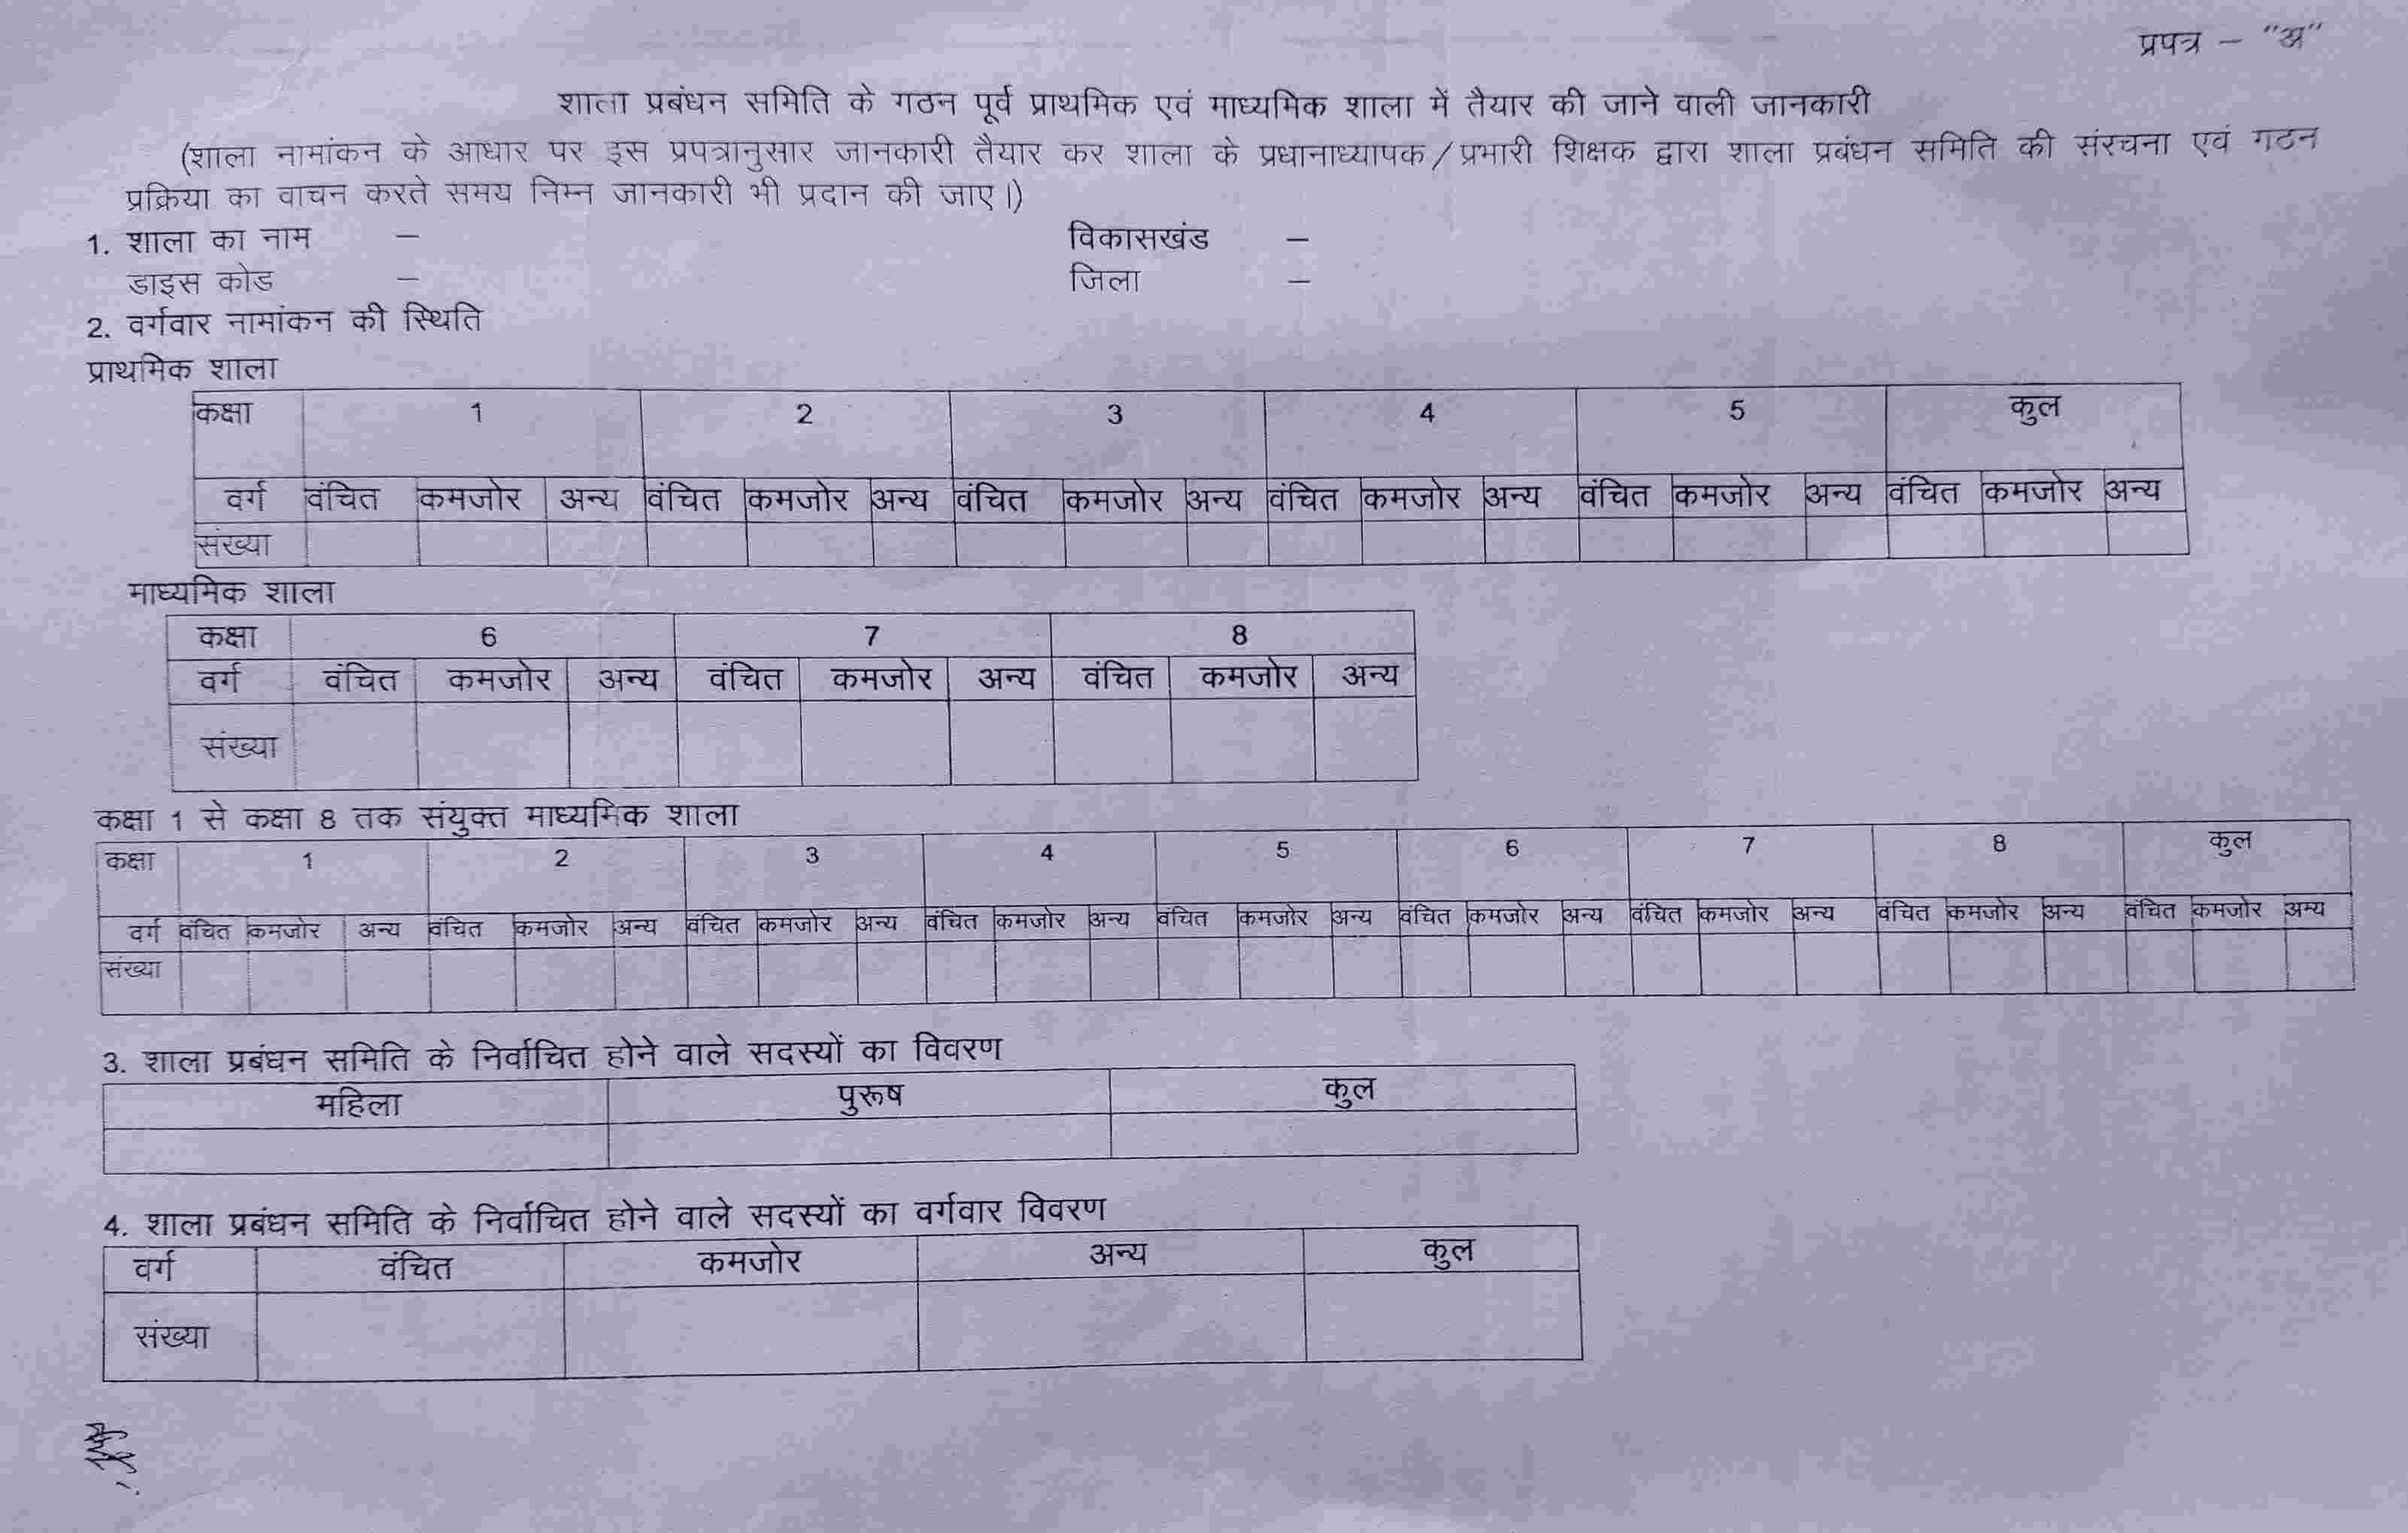 प्रपत्र – "अ"
शाला प्रबंधन समिति के गठन पूर्व प्राथमिक एवं माध्यमिक शाला में तैयार की जाने वाली जानकारी
(शाला नामांकन के आधार पर इस प्रपत्रानुसार जानकारी तैयार कर शाला के प्रधानाध्यापक/प्रभारी शिक्षक द्वारा शाला प्रबंधन समिति की संरचना एवं गठन
प्रक्रिया का वाचन करते समय निम्न जानकारी भी प्रदान की जाए।)
1. शाला का नाम – विकासखंड –
डाइस कोड – जिला –
2. वर्गवार नामांकन की स्थिति
प्राथमिक शाला
कक्षा 1 2 3 4 5 कुल
वर्ग वंचित कमजोर अन्य वंचित कमजोर अन्य वंचित कमजोर अन्य वंचित कमजोर अन्य वंचित कमजोर अन्य वंचित कमजोर अन्य
संख्या
माध्यमिक शाला
कक्षा 6 7 8
वर्ग वंचित कमजोर अन्य वंचित कमजोर अन्य वंचित कमजोर अन्य
संख्या
कक्षा 1 से कक्षा 8 तक संयुक्त माध्यमिक शाला
कक्षा 1 2 3 4 5 6 7 8 कुल
वर्ग वंचित कमजोर अन्य वंचित कमजोर अन्य वंचित कमजोर अन्य वंचित कमजोर अन्य वंचित कमजोर अन्य वंचित कमजोर अन्य वंचित कमजोर अन्य वंचित कमजोर अन्य वंचित कमजोर अन्य
संख्या
3. शाला प्रबंधन समिति के निर्वाचित होने वाले सदस्यों का विवरण
महिला पुरूष कुल
4. शाला प्रबंधन समिति के निर्वाचित होने वाले सदस्यों का वर्गवार विवरण
वर्ग वंचित कमजोर अन्य कुल
संख्या